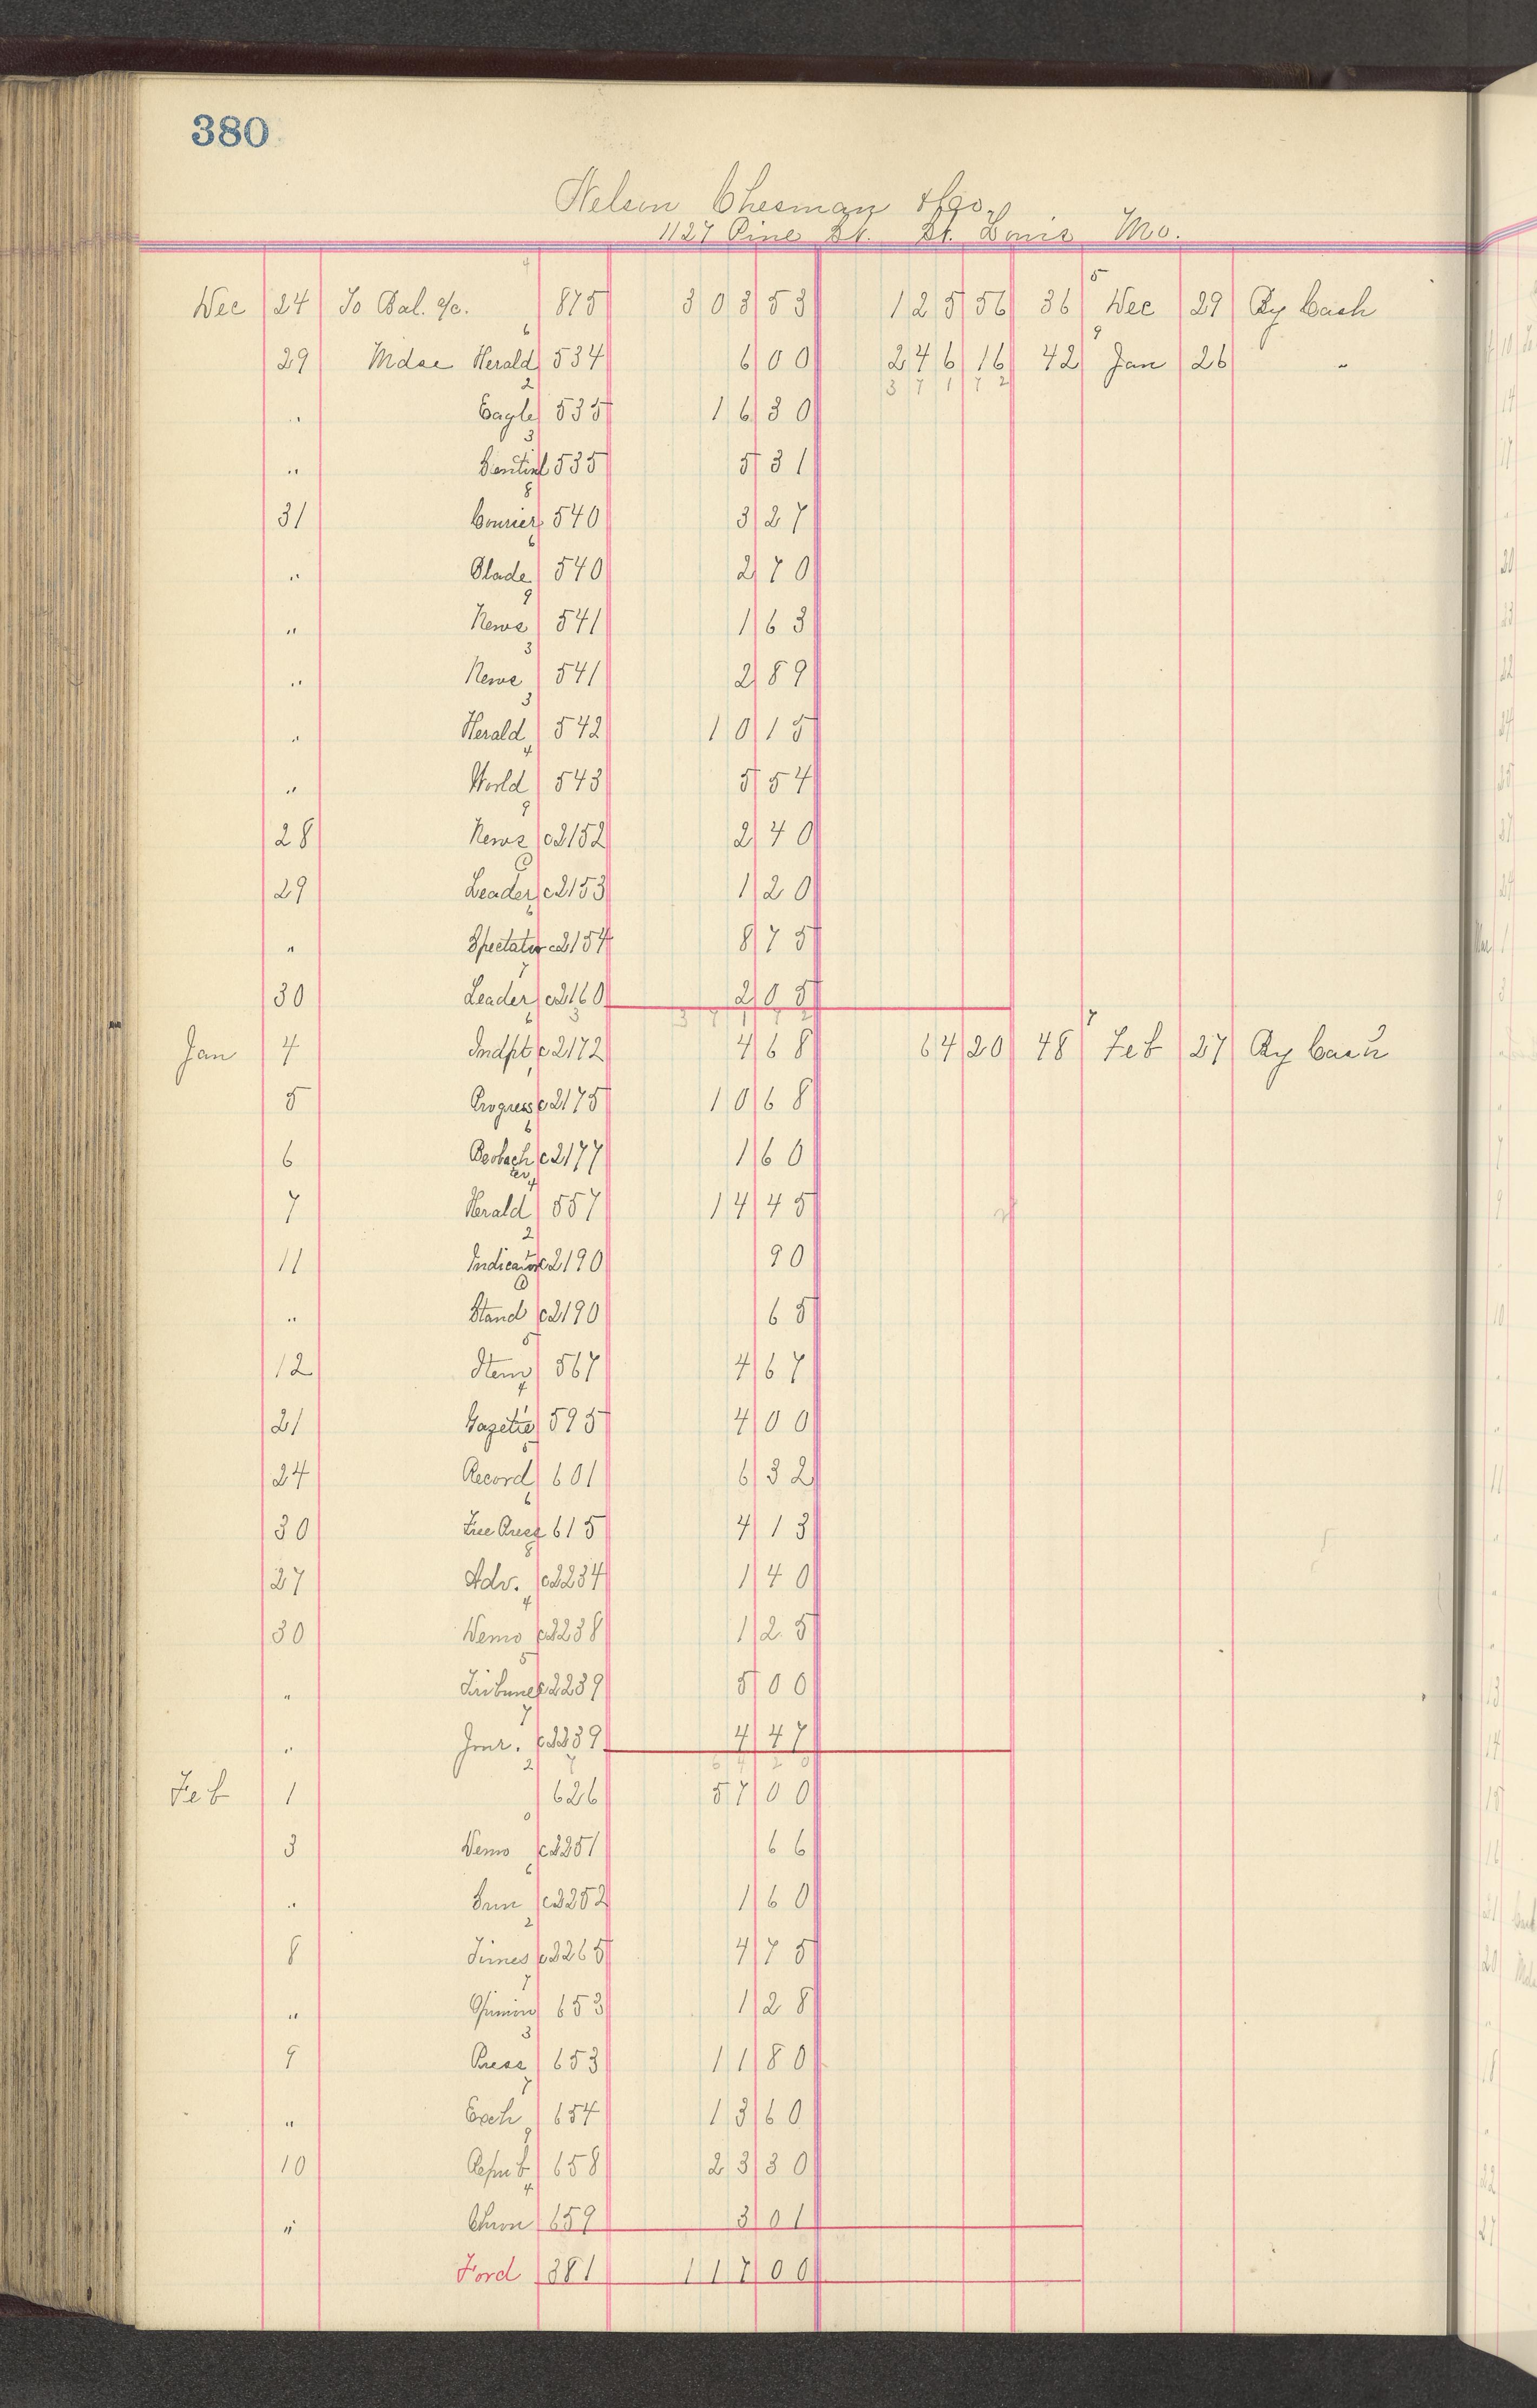 380
Nelson Chesman & Co.
1127 Pine St. St. Louis Mo.
Dec 24 To Bal. a/c. 875 303 53 125 56 36 5 Dec 29 By Cash
29 Mdse Herald 6 534 6 00 246 16 42 9 Jan 26 "
371 72
" Eagle 2 535 16 30
" Sentinl 3 535 5 31
31 Courier 8 540 3 27
" Blade 6 540 2 70
" News 9 541 1 63
" News 3 541 2 89
" Herald 3 542 10 15
" World 4 543 5 54
28 News 9 c2152 2 40
29 Leader c2153 1 20
" Spectator 6 c2154 8 75
30 Leader 7 c2160 2 05
371 72
Jan 4 Indpt 6 c2172 4 68 64 20 48 7 Feb 27 By Cash
5 Progress c2175 10 68
6 Beobachter 6 c2177 1 60
7 Herald 4 557 14 45
11 Indicator 2 c2190 90
" Stand c2190 65
12 Item 5 567 4 67
21 Gazette 4 595 4 00
24 Record 5 601 6 32
30 Free Press 6 615 4 13
27 Adv. 8 c2234 1 40
30 Demo 4 c2238 1 25
" Tribune 5 c2239 5 00
" Jour. 7 c2239 4 47
64 20
Feb 1 2 626 57 00
3 Demo 0 c2251 66
" Sun 6 c2252 1 60
8 Times 2 c2265 4 75
" Opinion 7 653 1 28
9 Press 3 653 11 80
" Exch 7 654 13 60
10 Repub 9 658 23 30
" Chron 4 659 3 01
Ford 381 117 00